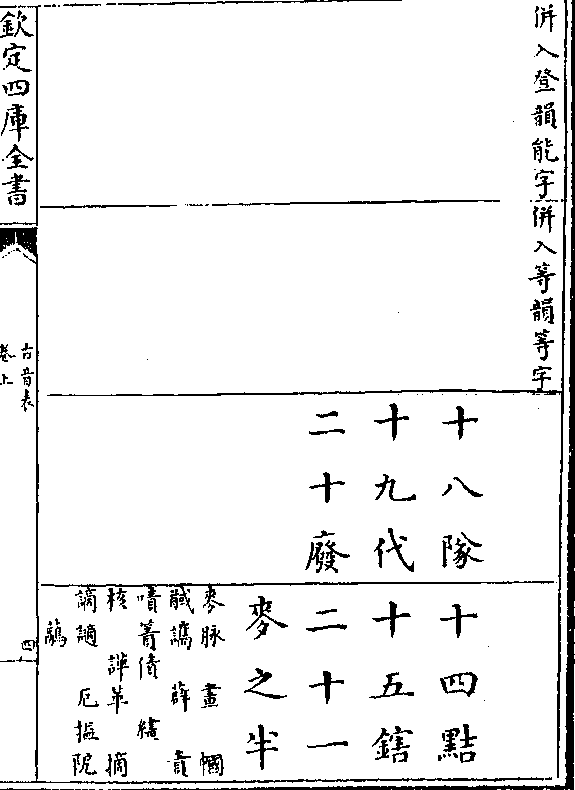 併入登韻能字
併入等韻等字
十八隊
十九代
二十廢
十四黠
十五鎋
二十一
麥之半
麥脉 畫 幗
馘 薜 責
嘖簀債
核 革 摘
謫 厄搤阸
欽定四庫全書
古音表
卷上
四